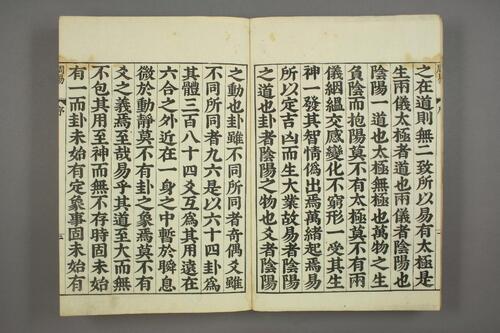 之在道則無二致所以易有太極是
生兩儀太極者道也兩儀者陰陽也
陰陽一道也太極無極也萬物之生
負陰而抱陽莫不有太極莫不有兩
儀絪縕交感變化不窮形一受其生
神一發其智情僞出焉萬緒起焉易
所以定吉凶而生大業故易者陰陽
之道也卦者陰陽之物也爻者陰陽
之動也卦雖不同所同者奇偶爻雖
不同所同者九六是以六十四卦爲
其體三百八十四爻互爲其用遠在
六合之外近在一身之中暫於瞬息
微於動靜莫不有卦之象焉莫不有
爻之義焉至哉易乎其道至大而無
不包其用至神而無不存時固未始
有一而卦未始有定象事固未始有